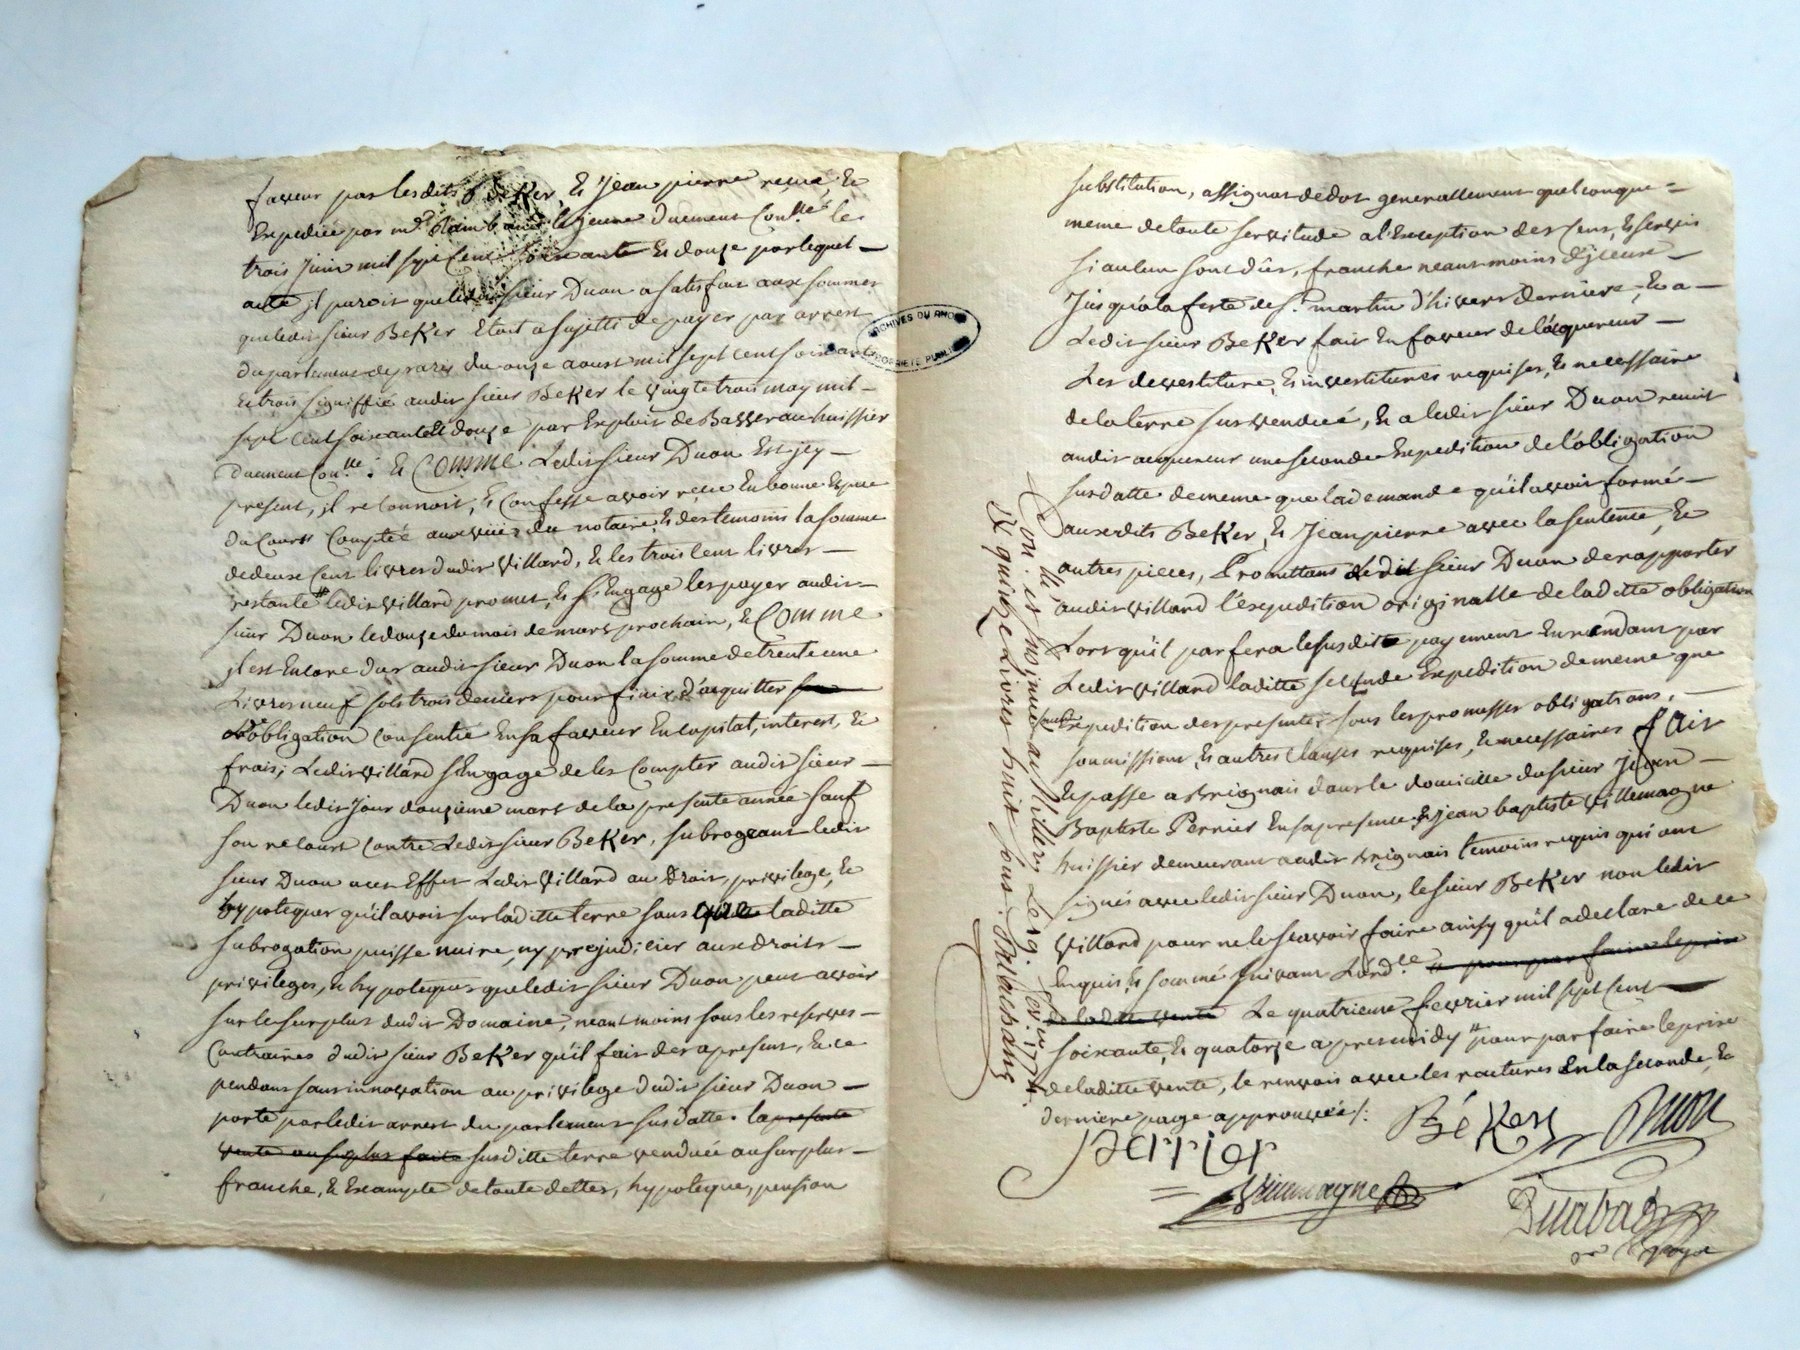 faveur par lesdits Beker, & Jean pierre recue, &
Expediée par me. Rambaud le jeune duement Conllé le
trois juin mil sept Cent soixante & douze par lequel
acte, jl paroit que ledit sieur Duon a satisfait aux sommes
que ledit sieur Beker Etoit asujetti de payer par arrest
du parlement de paris du onze aoust mil sept cent soixante
& trois signiffié audit sieur Beker le vingt trois may mil
sept cent soixante & douze par Exploit de Basserau huissier
duement Conllé: & Comme Ledit sieur Duon Est jcy
present, jl reconnoit, & Confesse avoir reçu En bonne Espece
du Cours Comptée aux vües du notaire & des temoins la somme
de deux Cent livres dudit Villard, & les trois Cent livres
restante ledit Villard promet, & s'Engage les payer audit
sieur Duon le douze du mois de mars prochain, & Comme
jl est Encore due audit sieur Duon la somme de trente une
Livres neuf sols trois deniers pour finir d'acquitter
L'obligation Consentie En sa faveur En capital, interest, &
frais, Ledit Villard s'Engage de les Compter audit sieur
Duon ledit Jour douzieme mars de la presente année sauf
son recourt Contre Ledit sieur Beker, subrogeant ledit
sieur Duon a cet Effet Ledit Villard au Droit, privilege, &
hypoteques qu'il avoit sur laditte terre sans que laditte
subrogation puisse nuire, ny prejudicier aux droits
privileges, & hypoteques que ledit sieur Duon peut avoir
sur le surplus dudit Domaine, neantmoins sous les reserves
Contraires dudit sieur Beker qu'il fait des apresent, & ce
pendant sans innovation au privilege dudit sieur Duon
porté par ledit arrest du parlement susdatté. la presente
vente au surplus faite susditte terre vendüe au surplus
franche, & Exempte de toute dettes, hypoteque, pension
substitution, assignat de dot generallement quelconque
meme de toute servitude a l'Exception des Cens, & servis
si aucun sont dûs, franche neantmoins d'jceux
Jusqu'a la feste de St. martin d'hivert derniere, & a
Ledit sieur Beker fait En faveur de l'acquereur
Les devestiture, & investitures requises, & necessaire
de la terre sus vendüe, & a ledit sieur Duon remit
audit acquereur une seconde Expedition de l'obligation
susdatté de meme que la demande qu'il avoit formé
auxdits Beker, & Jean pierre avec la sentence, &
autres pieces, Promettant Ledit sieur Duon de rapporter
audit Villard l'expedition originalle de laditte obligation
Lorsqu'il parfera le susdit payement En rendant par
Ledit Villard laditte seconde Expedition de meme que
Expedition des presentes sous les promesses obligations,
soumissions, & autres Clauses requises, & necessaires fait
& passé a Brignais dans le domicille du sieur Jean
Baptiste Perrier En sa presence & jean baptiste Villemagne
huissier demeurant audit Brignais temoins requis qui ont
signés avec ledit sieur Duon, le sieur Beker non ledit
Villard pour ne le sçavoir faire ainsy qu'il a declaré de ce
Enquis, & sommé suivant L'ord.ce & pour parfaire le prix
de ladite vente Le quatrieme fevrier mil sept Cent
soixante, & quatorze apres midy pour parfaire le prix
de laditte vente, le renvois avec les ratures En la seconde, &
derniere page approuvées /:
Conllé. et insinué a
& quinze Livres huit sous.
Beker Duon
Perrier
Villemagne